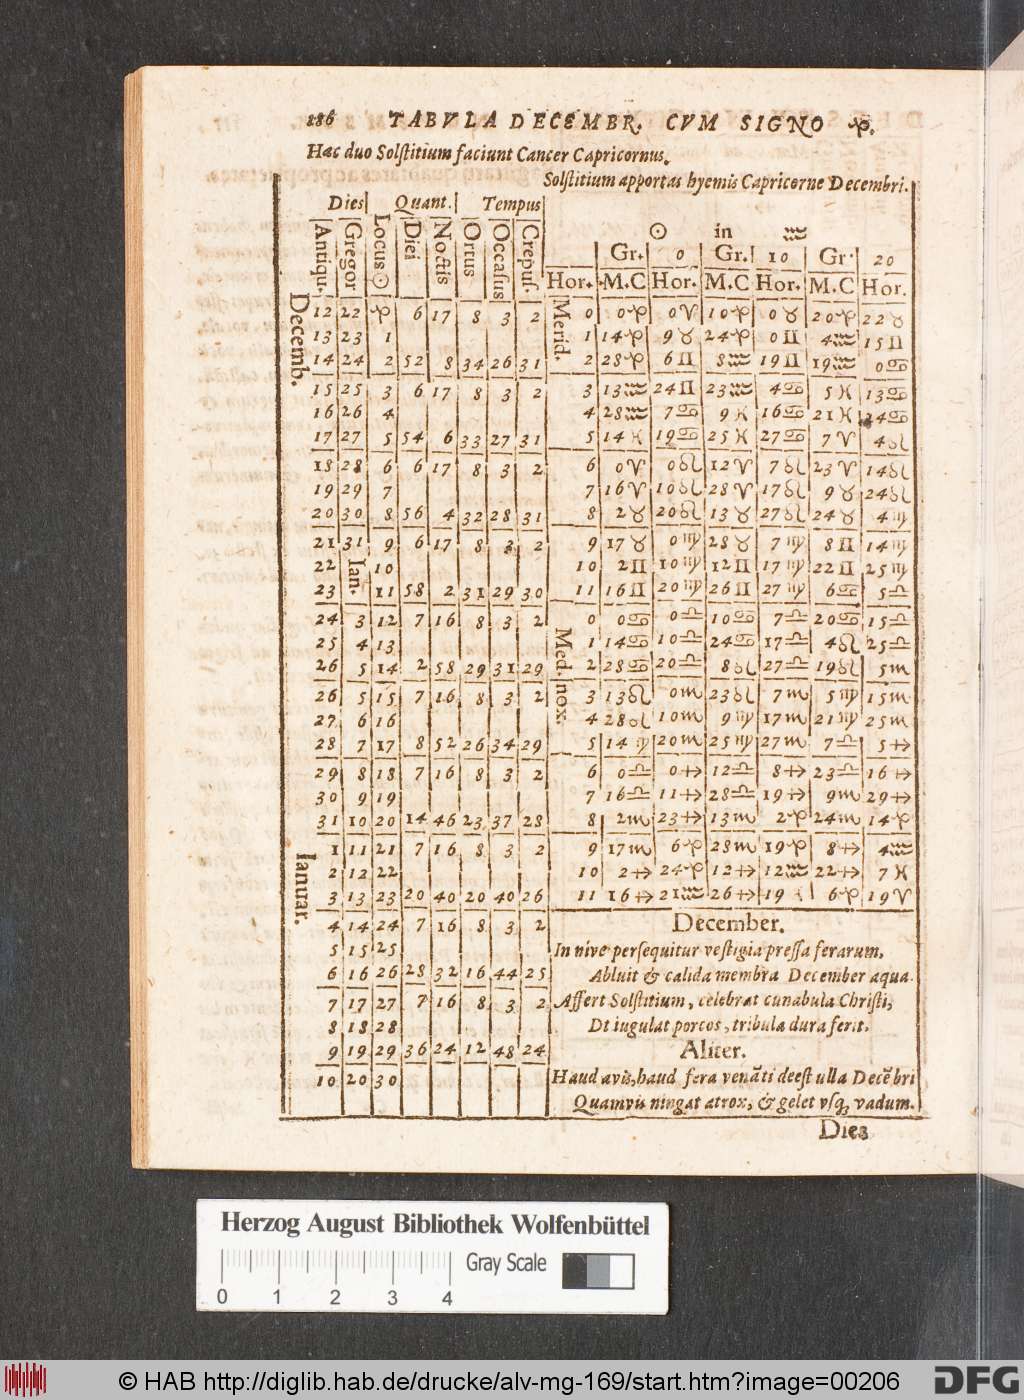 186 TABVLA DECEMBR. CVM SIGNO ♑.
Hac duo Solſtitium faciunt Cancer Capricornus.
Solſtitium apportas hyemis Capricorne Decembri.
Dies | Quant. | Tempus
Antiqu. | Gregor | Locus ☉ | Diei | Noctis | Ortus | Occaſus | Crepuſ.
Decemb.
12 22 ♑ 6 17 8 3 2
13 23 1
14 24 2 52 8 34 26 31
15 25 3 6 17 8 3 2
16 26 4
17 27 5 54 6 33 27 31
18 28 6 6 17 8 3 2
19 29 7
20 30 8 56 4 32 28 31
21 31 9 6 17 8 3 2
22 Ian. 10
23 11 58 2 31 29 30
24 3 12 7 16 8 3 2
25 4 13
26 5 14 2 58 29 31 29
26 5 15 7 16 8 3 2
27 6 16
28 7 17 8 52 26 34 29
29 8 18 7 16 8 3 2
30 9 19
31 10 20 14 46 23 37 28
Ianuar.
1 11 21 7 16 8 3 2
2 12 22
3 13 23 20 40 20 40 26
4 14 24 7 16 8 3 2
5 15 25
6 16 26 28 32 16 44 25
7 17 27 7 16 8 3 2
8 18 28
9 19 29 36 24 12 48 24
10 20 30
☉ in ♒
Gr. 0 Gr. 10 Gr. 20
Hor. M.C Hor. M.C Hor. M.C Hor.
Merid.
0 0♑ 0♈ 10♑ 0♉ 20♑ 22♉
1 14♑ 9♉ 24♑ 0♊ 4♒ 15♊
2 28♑ 6♊ 8♒ 19♊ 19♒ 0♋
3 13♒ 24♊ 23♒ 4♋ 5♓ 13♋
4 28♒ 7♋ 9♓ 16♋ 21♓ 24♋
5 14♓ 19♋ 25♓ 27♋ 7♈ 4♌
6 0♈ 0♌ 12♈ 7♌ 23♈ 14♌
7 16♈ 10♌ 28♈ 17♌ 9♉ 24♌
8 2♉ 20♌ 13♉ 27♌ 24♉ 4♍
9 17♉ 0♍ 28♉ 7♍ 8♊ 14♍
10 2♊ 10♍ 12♊ 17♍ 22♊ 25♍
11 16♊ 20♍ 26♊ 27♍ 6♋ 5♎
Med. nox.
0 0♋ 0♎ 10♋ 7♎ 20♋ 15♎
1 14♋ 10♎ 24♋ 17♎ 4♌ 25♎
2 28♋ 20♎ 8♌ 27♎ 19♌ 5♏
3 13♌ 0♏ 23♌ 7♏ 5♍ 15♏
4 28♌ 10♏ 9♍ 17♏ 21♍ 25♏
5 14♍ 20♏ 25♍ 27♏ 7♎ 5♐
6 0♎ 0♐ 12♎ 8♐ 23♎ 16♐
7 16♎ 11♐ 28♎ 19♐ 9♏ 29♐
8 2♏ 23♐ 13♏ 2♑ 24♏ 14♑
9 17♏ 6♑ 28♏ 19♑ 8♐ 4♒
10 2♐ 24♑ 12♐ 12♒ 22♐ 7♓
11 16♐ 21♒ 26♐ 19 6♑ 19♈
December.
In nive perſequitur veſtigia preſſa ferarum,
Abluit & calida membra December aqua.
Affert Solſtitium, celebrat cunabula Chriſti,
Dt iugulat porcos, tribula dura ferit.
Aliter.
Haud avis, haud fera venāti deeſt ulla Decẽbri
Quamvis ningat atrox, & gelet vſq; vadum.
Dies
Herzog August Bibliothek Wolfenbüttel
0 1 2 3 4
Gray Scale
© HAB http://diglib.hab.de/drucke/alv-mg-169/start.htm?image=00206
DFG